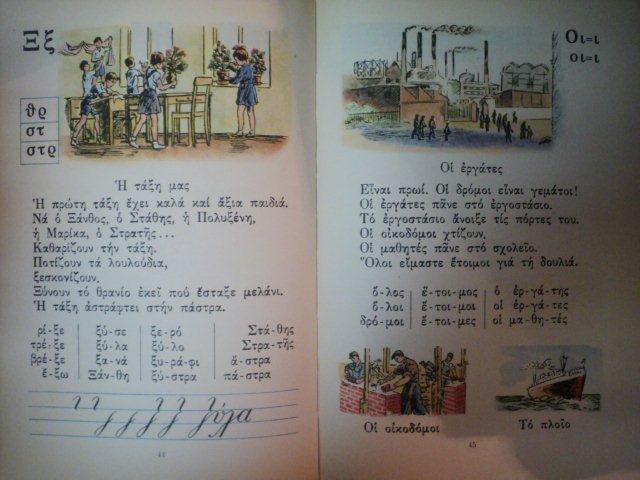 Ξξ
θρ
στ
στρ
Ἡ τάξη μας
Ἡ πρώτη τάξη ἔχει καλά καί ἄξια παιδιά.
Νά ὁ Ξάνθος, ὁ Στάθης, ἡ Πολυξένη,
ἡ Μαρίκα, ὁ Στρατῆς...
Καθαρίζουν τήν τάξη.
Ποτίζουν τά λουλούδια,
ξεσκονίζουν.
Ξύνουν τό θρανίο ἐκεῖ πού ἔσταξε μελάνι.
Ἡ τάξη ἀστράφτει στήν πάστρα.
ρί-ξε ξύ-σε ξε-ρό Στά-θης
τρέ-ξε ξύ-λα ξύ-λο Στρα-τῆς
βρέ-ξε ξα-νά ξυ-ράφι ἄ-στρα
ἔ-ξω Ξάν-θη ξύ-στρα πά-στρα
ξύλα
44
Οι=ι
οι=ι
Οἱ ἐργάτες
Εἶναι πρωί. Οἱ δρόμοι εἶναι γεμάτοι!
Οἱ ἐργάτες πᾶνε στό ἐργοστάσιο.
Τό ἐργοστάσιο ἄνοιξε τίς πόρτες του.
Οἱ οἰκοδόμοι χτίζουν.
Οἱ μαθητές πᾶνε στό σχολεῖο.
Ὅλοι εἴμαστε ἕτοιμοι γιά τή δουλιά.
ὅ-λος ἕ-τοι-μος ὁ ἐρ-γά-της
ὅ-λοι ἕ-τοι-μοι οἱ ἐρ-γά-τες
δρό-μοι ἕ-τοι-μες οἱ μα-θη-τές
Οἱ οἰκοδόμοι
Τό πλοῖο
45